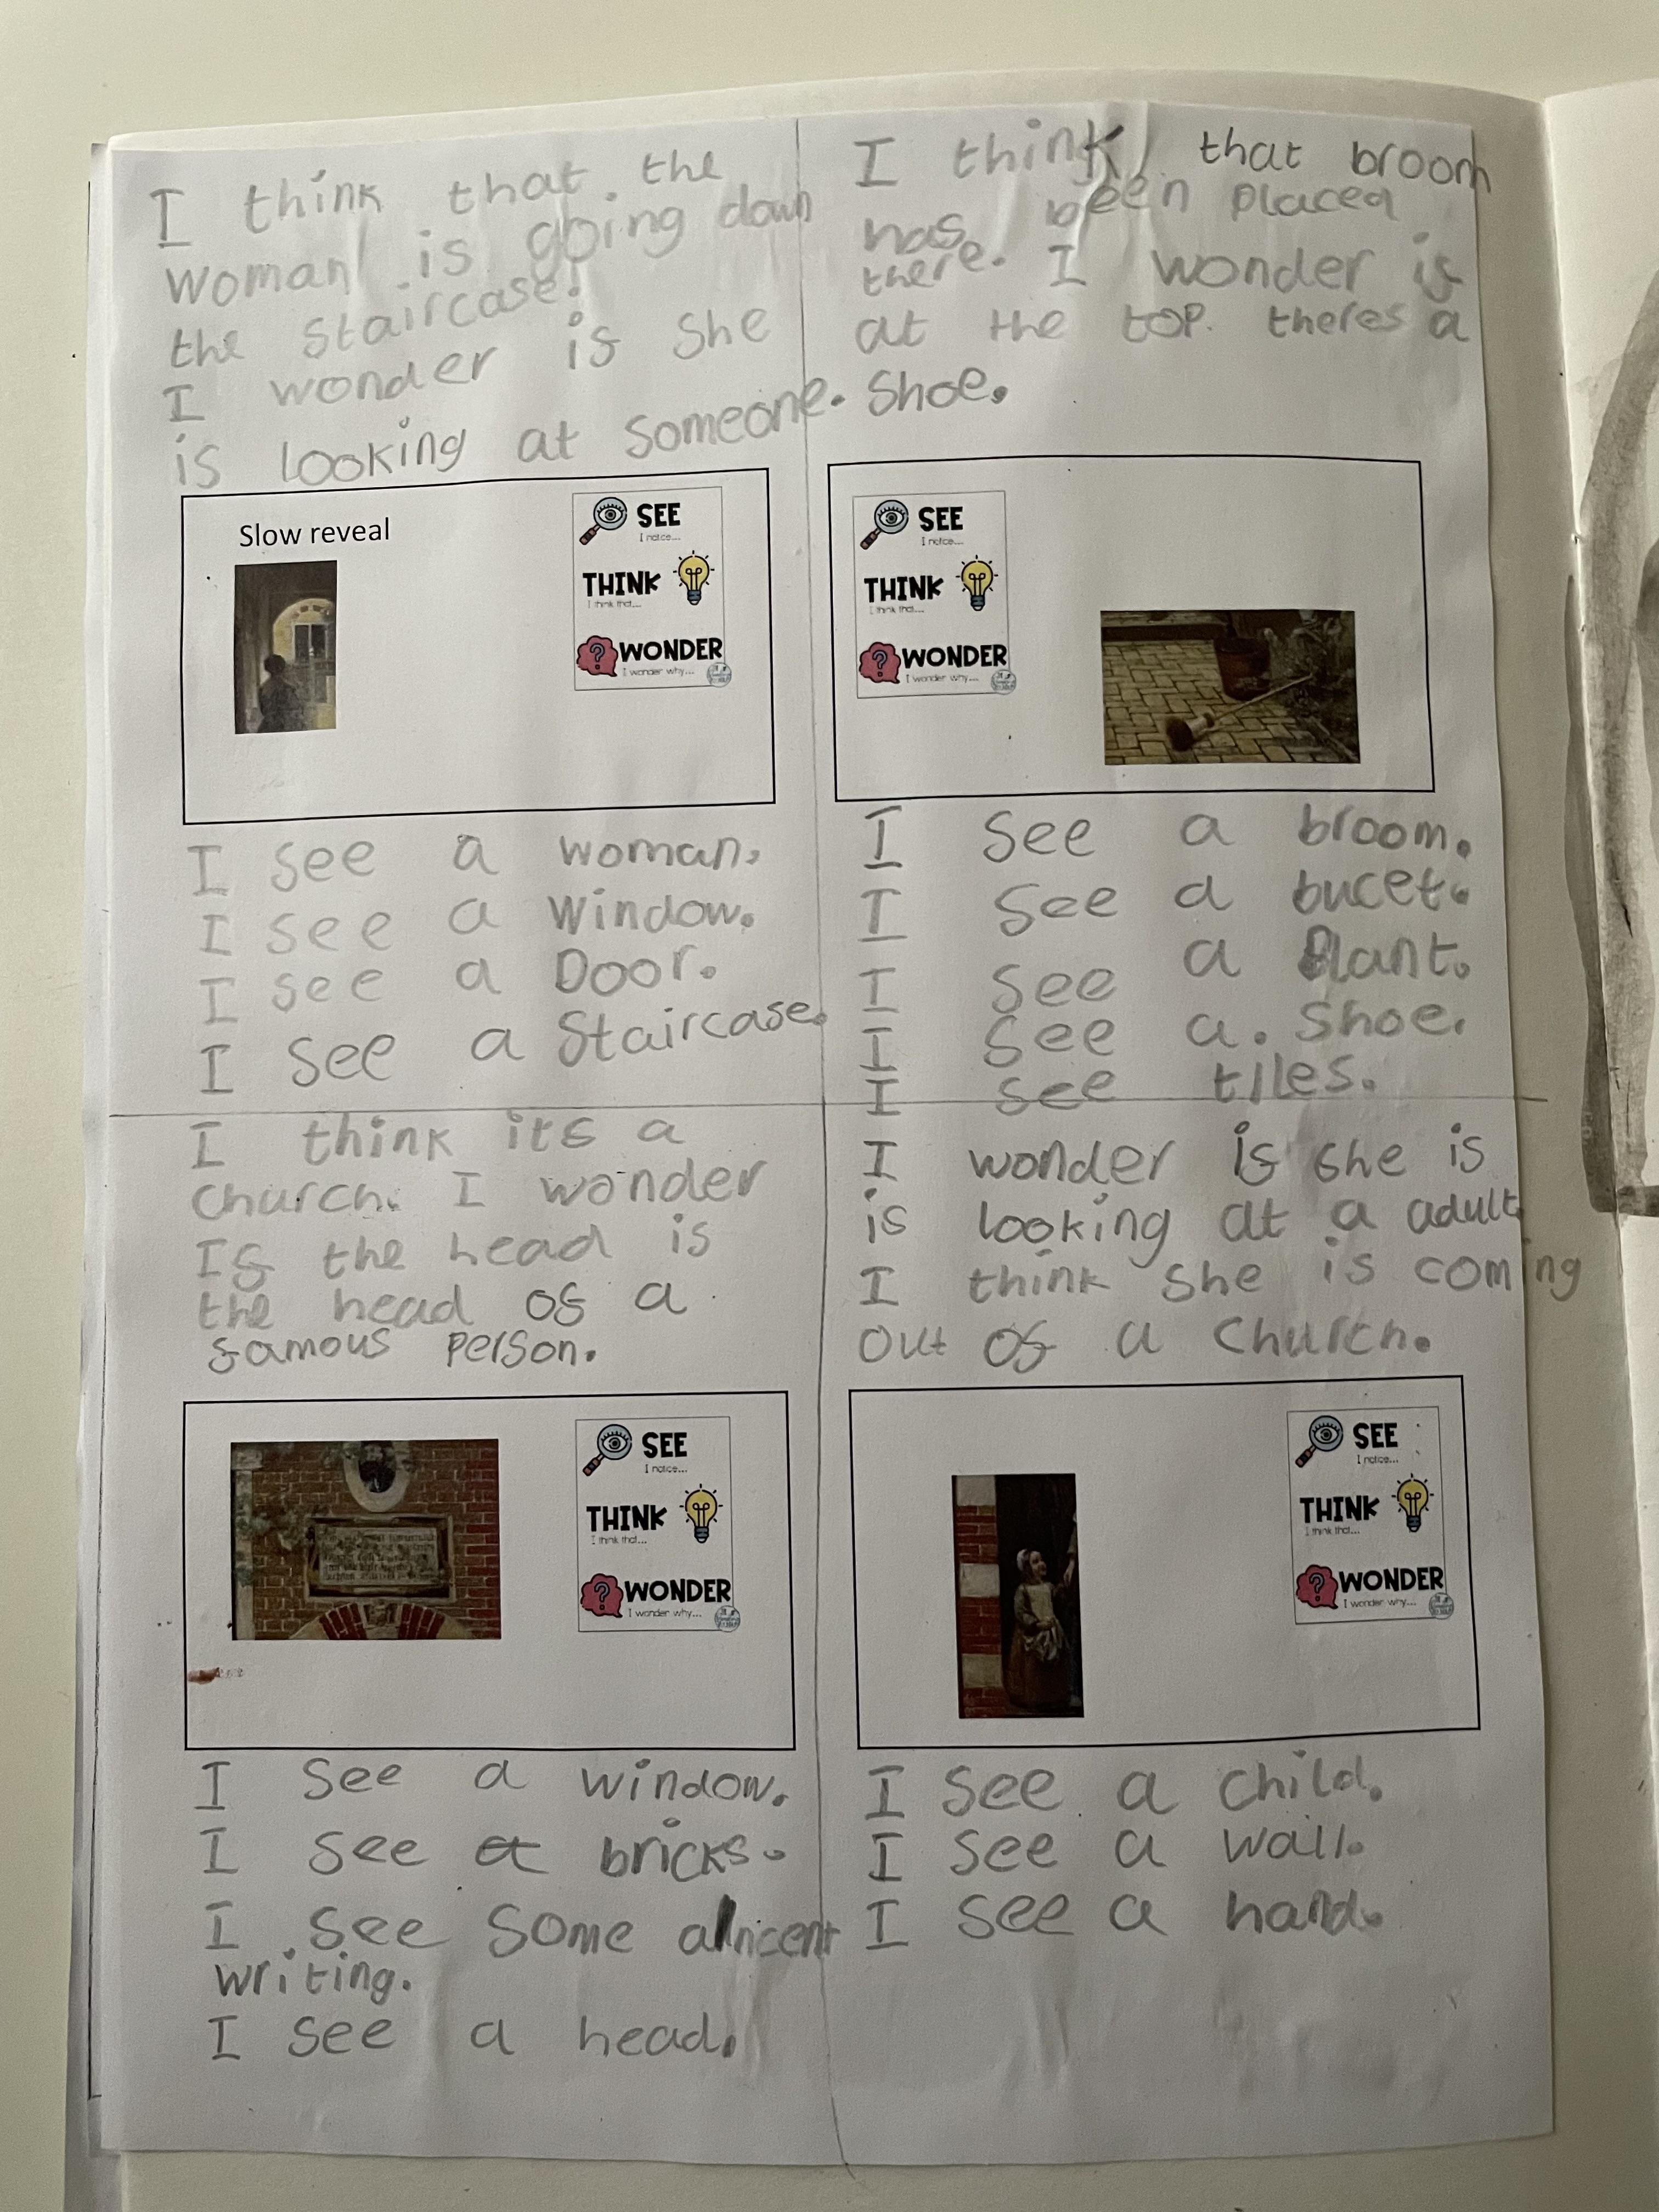 I think that the
woman is going down
the staircase.
I wonder if she
is looking at someone.
Slow reveal
SEE
I notice...
THINK
I think that...
WONDER
I wonder why...
I see a woman.
I see a window.
I see a Door.
I see a staircase.
I think that broom
has been placed
there. I wonder if
at the top theres a
shoe.
SEE
I notice...
THINK
I think that...
WONDER
I wonder why...
I see a broom.
I see a bucet.
I see a Plant.
I see a shoe.
I see tiles.
I think its a
church. I wonder
If the head is
the head of a
famous person.
SEE
I notice...
THINK
I think that...
WONDER
I wonder why...
I see a window.
I see a bricks.
I see some
writing.
I see a head.
I wonder if she is
is looking at a adult.
I think she is coming
out of a church.
SEE
I notice...
THINK
I think that...
WONDER
I wonder why...
I see a child.
I see a wall.
I see a hand.